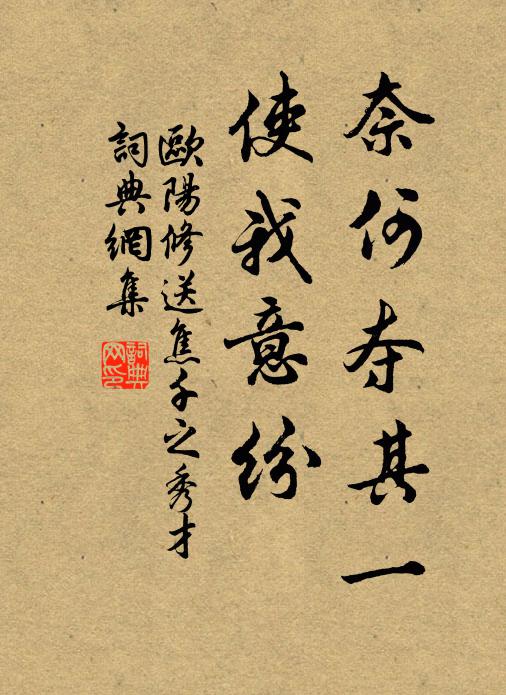 奈何夺其一
使我意纷
歐陽修送焦千之秀才
詞典網集
詞典网印